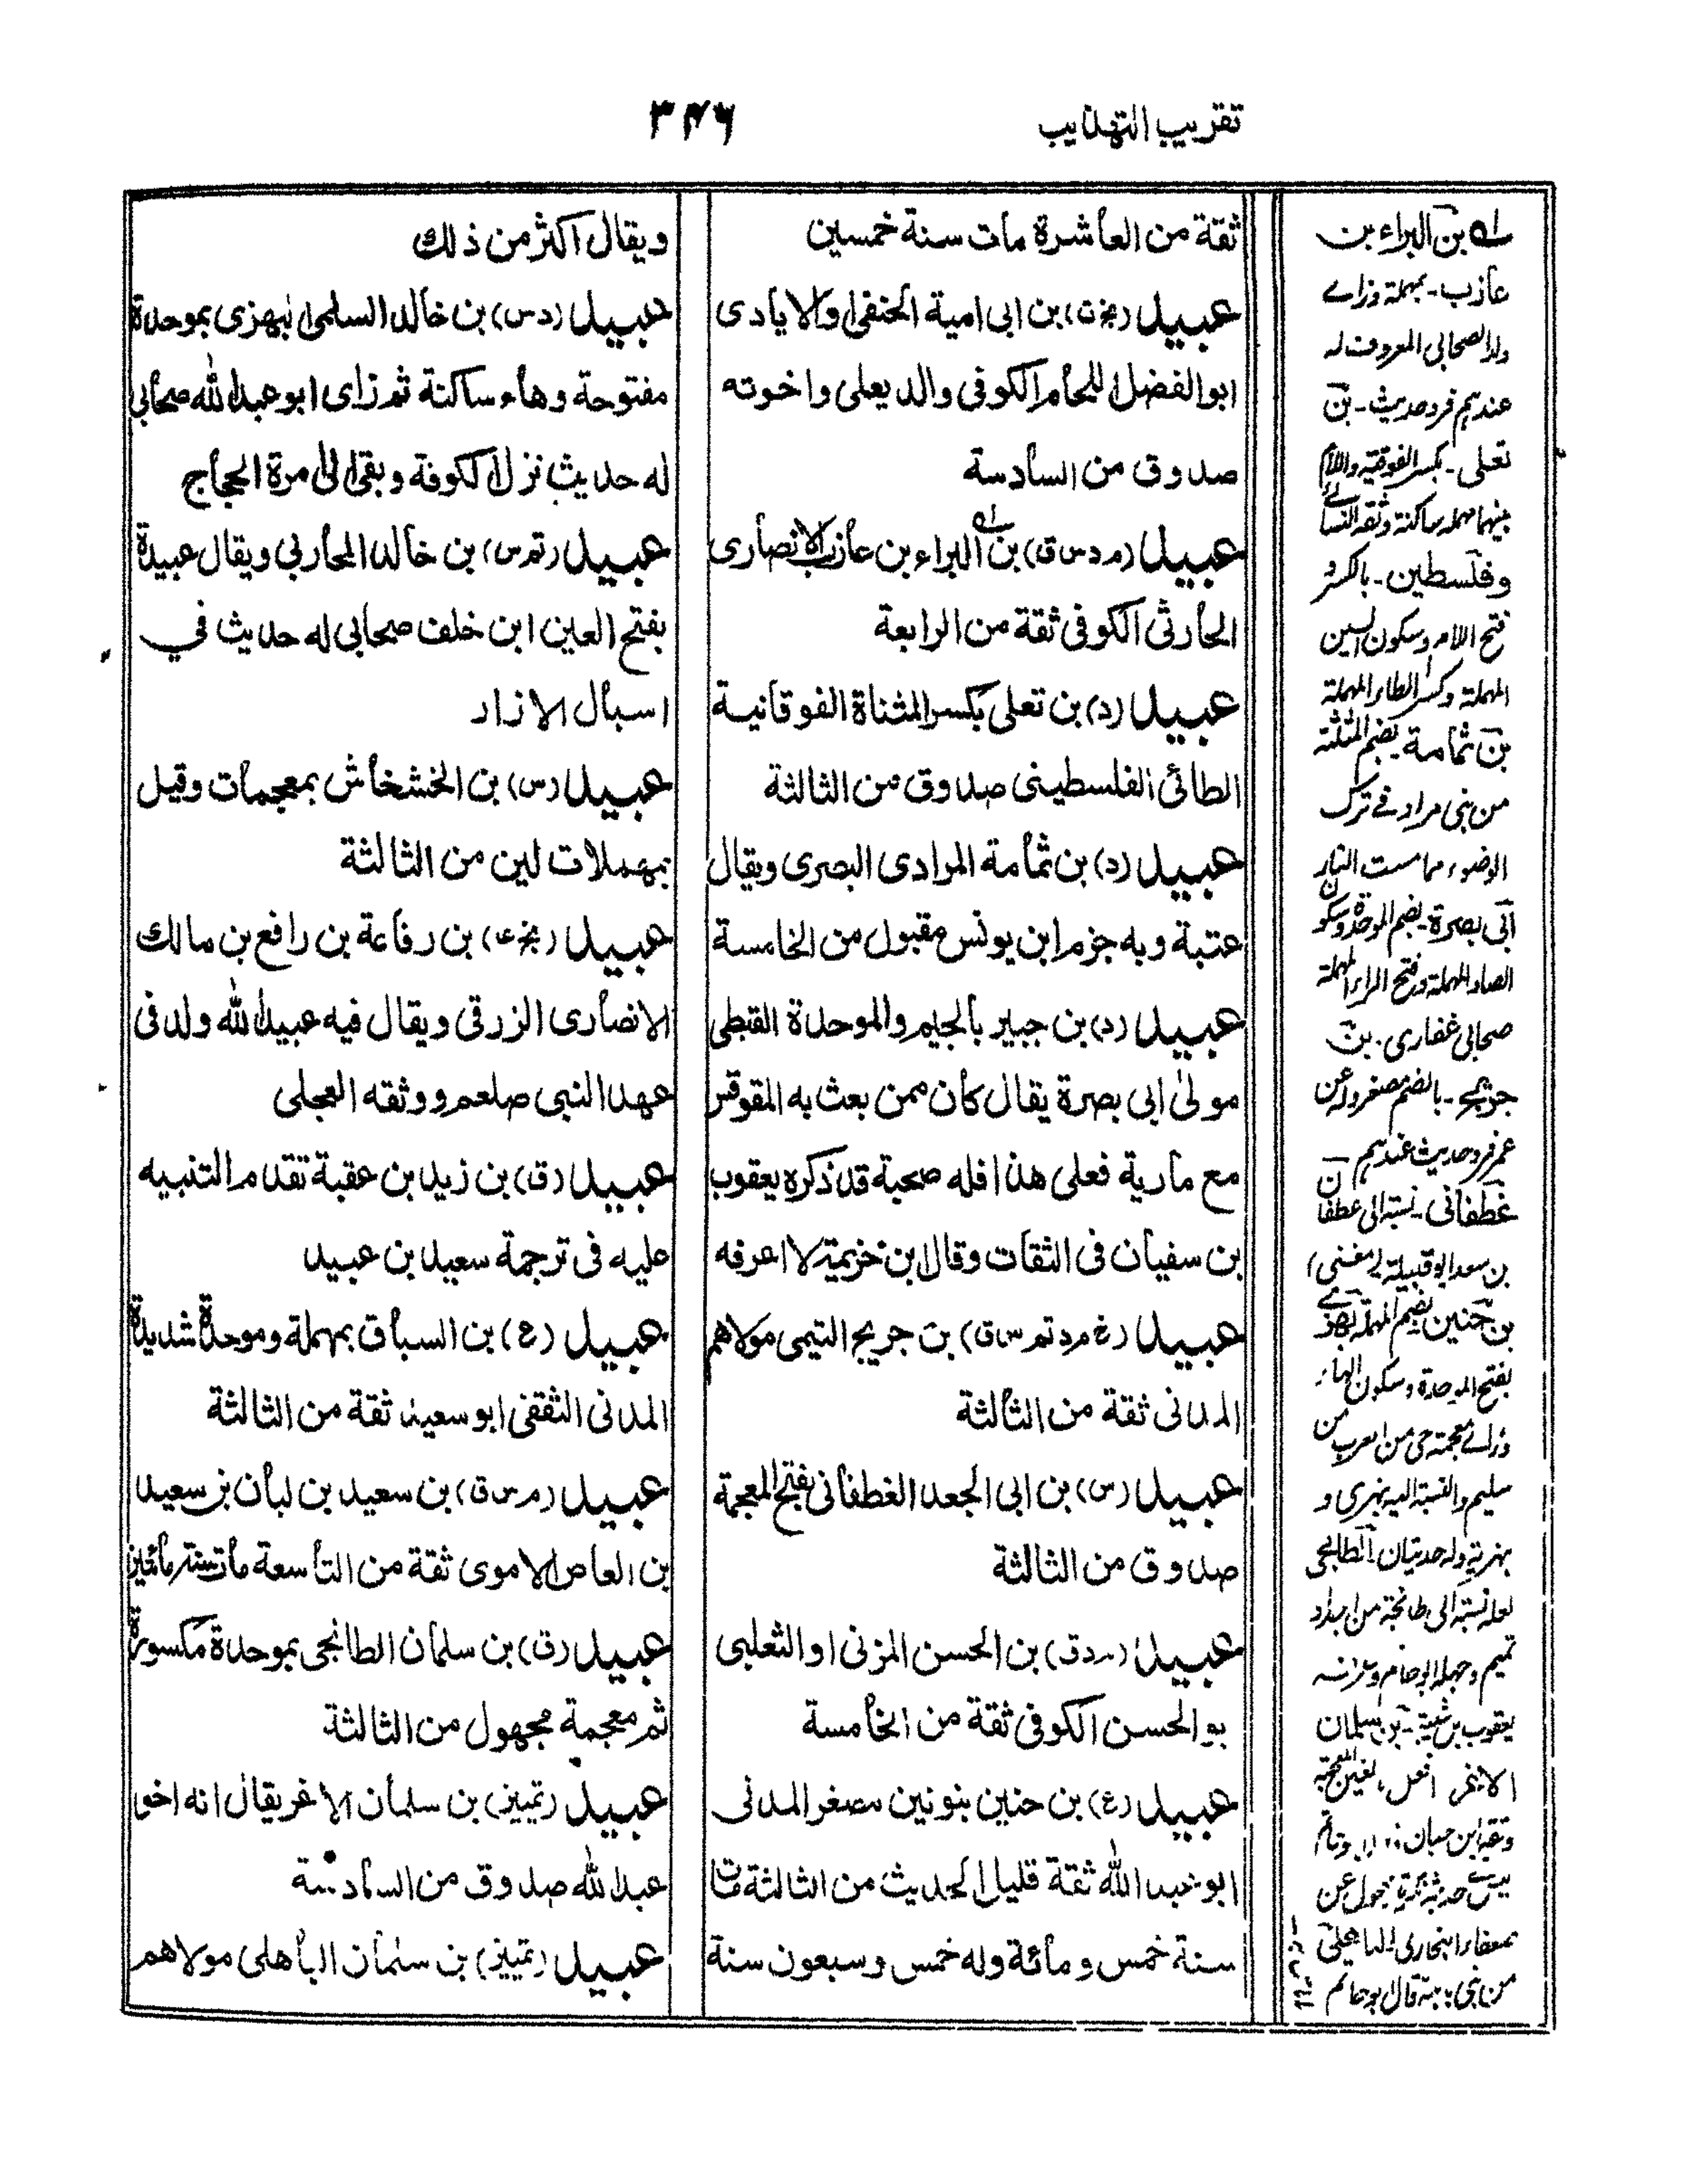 تقريب التهذيب
٣٤٦
ثقة من العاشرة مات سنة خمسين
عبيد (بخ ت) بن ابى امية الحنفى والايادى
ابوالفضل اللحام الكوفى والد يعلى واخوته
صدوق من السادسة
عبيد (م د س ق) بن البراء بن عازب الانصارى
الحارثى الكوفى ثقة من الرابعة
عبيد (د) بن تعلى بكسر المثناة الفوقانية
الطائى الفلسطينى صدوق من الثالثة
عبيد (د) بن ثمامة المرادى البصرى ويقال
عتبة وبه جزم ابن يونس مقبول من الخامسة
عبيد (د) بن جبير بالجيم والموحدة القبطى
مولى ابى بصرة يقال كان ممن بعث به المقوقس
مع مارية فعلى هذا فله صحبة قد ذكره يعقوب
بن سفيان فى الثقات وقال ابن خزيمة لا اعرفه
عبيد (خ م د تم س ق) بن جريج التيمى مولاهم
المدنى ثقة من الثالثة
عبيد (س) بن ابى الجعد الغطفانى بفتح المعجمة
صدوق من الثالثة
عبيد (م د ق) بن الحسن المزنى او الثعلبى
بو الحسن الكوفى ثقة من الخامسة
عبيد (ع) بن حنين بنونين مصغر المدنى
ابو عبد الله ثقة قليل الحديث من الثالثة مات
سنة خمس ومائة وله خمس وسبعون سنة
ويقال اكثر من ذلك
عبيد (د س) بن خالد السلمى البهزى بموحدة
مفتوحة وهاء ساكنة ثم زاى ابو عبد الله صحابى
له حديث نزل الكوفة وبقى الى امرة الحجاج
عبيد (تم س) بن خالد المحاربى ويقال عبيدة
بفتح العين ابن خلف صحابى له حديث في
اسبال الازار
عبيد (س) بن الخشخاش بمعجمات وقيل
بمهملات لين من الثالثة
عبيد (بخ ع) بن رفاعة بن رافع بن مالك
الانصارى الزرقى ويقال فيه عبيد الله ولد فى
عهد النبى صلعم ووثقه العجلى
عبيد (ق) بن زيد بن عقبة تقدم التنبيه
عليه فى ترجمة سعيد بن عبيد
عبيد (ع) بن السباق بمهملة وموحدة شديدة
المدنى الثقفى ابو سعيد ثقة من الثالثة
عبيد (م س ق) بن سعيد بن ابان بن سعيد
بن العاص الاموى ثقة من التاسعة مات سنة مائتين
عبيد (ق) بن سلمان الطابخى بموحدة مكسورة
ثم معجمة مجهول من الثالثة
عبيد (تمييز) بن سلمان الاغر يقال انه اخو
عبد الله صدوق من السادسة
عبيد (تمييز) بن سلمان الباهلى مولاهم
له بن البراء بن
عازب - بمهملة وزاے
ولد الصحابى المعروف له
عندهم فرد حديث - بن
تعلى - بكسر الفوقية واللام
بينهما مهملة ساكنة وثقه النسائے
وفلسطين - بالكسر و
فتح اللام وسكون السين
المهملة وكسر الطاء المهملة
بن ثمامة بضم المثلثة
من بنى مراد فے ترك
الوضوء مما مست النار
ابى بصرة - بضم الموحدة وسكون
الصاد المهملة وفتح الراء المهملة
صحابى غفارى - بن
جريج - بالضم مصغر وله عن
عمر فرد حديث عندهم -
غطفانى - نسبة الى غطفان
بن سعد ابو قبيلة (مغنى)
بن حنين بضم المهملة بهزے
بفتح الموحدة وسكون الهاء
وزاے معجمة حى من العرب من
سليم والنسبة اليه بهزى و
بهزية وله حديثان الطابخى
لعله نسبة الى طابخة من
تميم وجهله ابو حاتم وعرفه
يعقوب بن شيبة - بن سلمان
الاغر افعل بغين المعجمة
وثقه ابن حبان
حديثه يحول عن
ضعفاء البخارى الباهلى
من بنى قال ابو حاتم